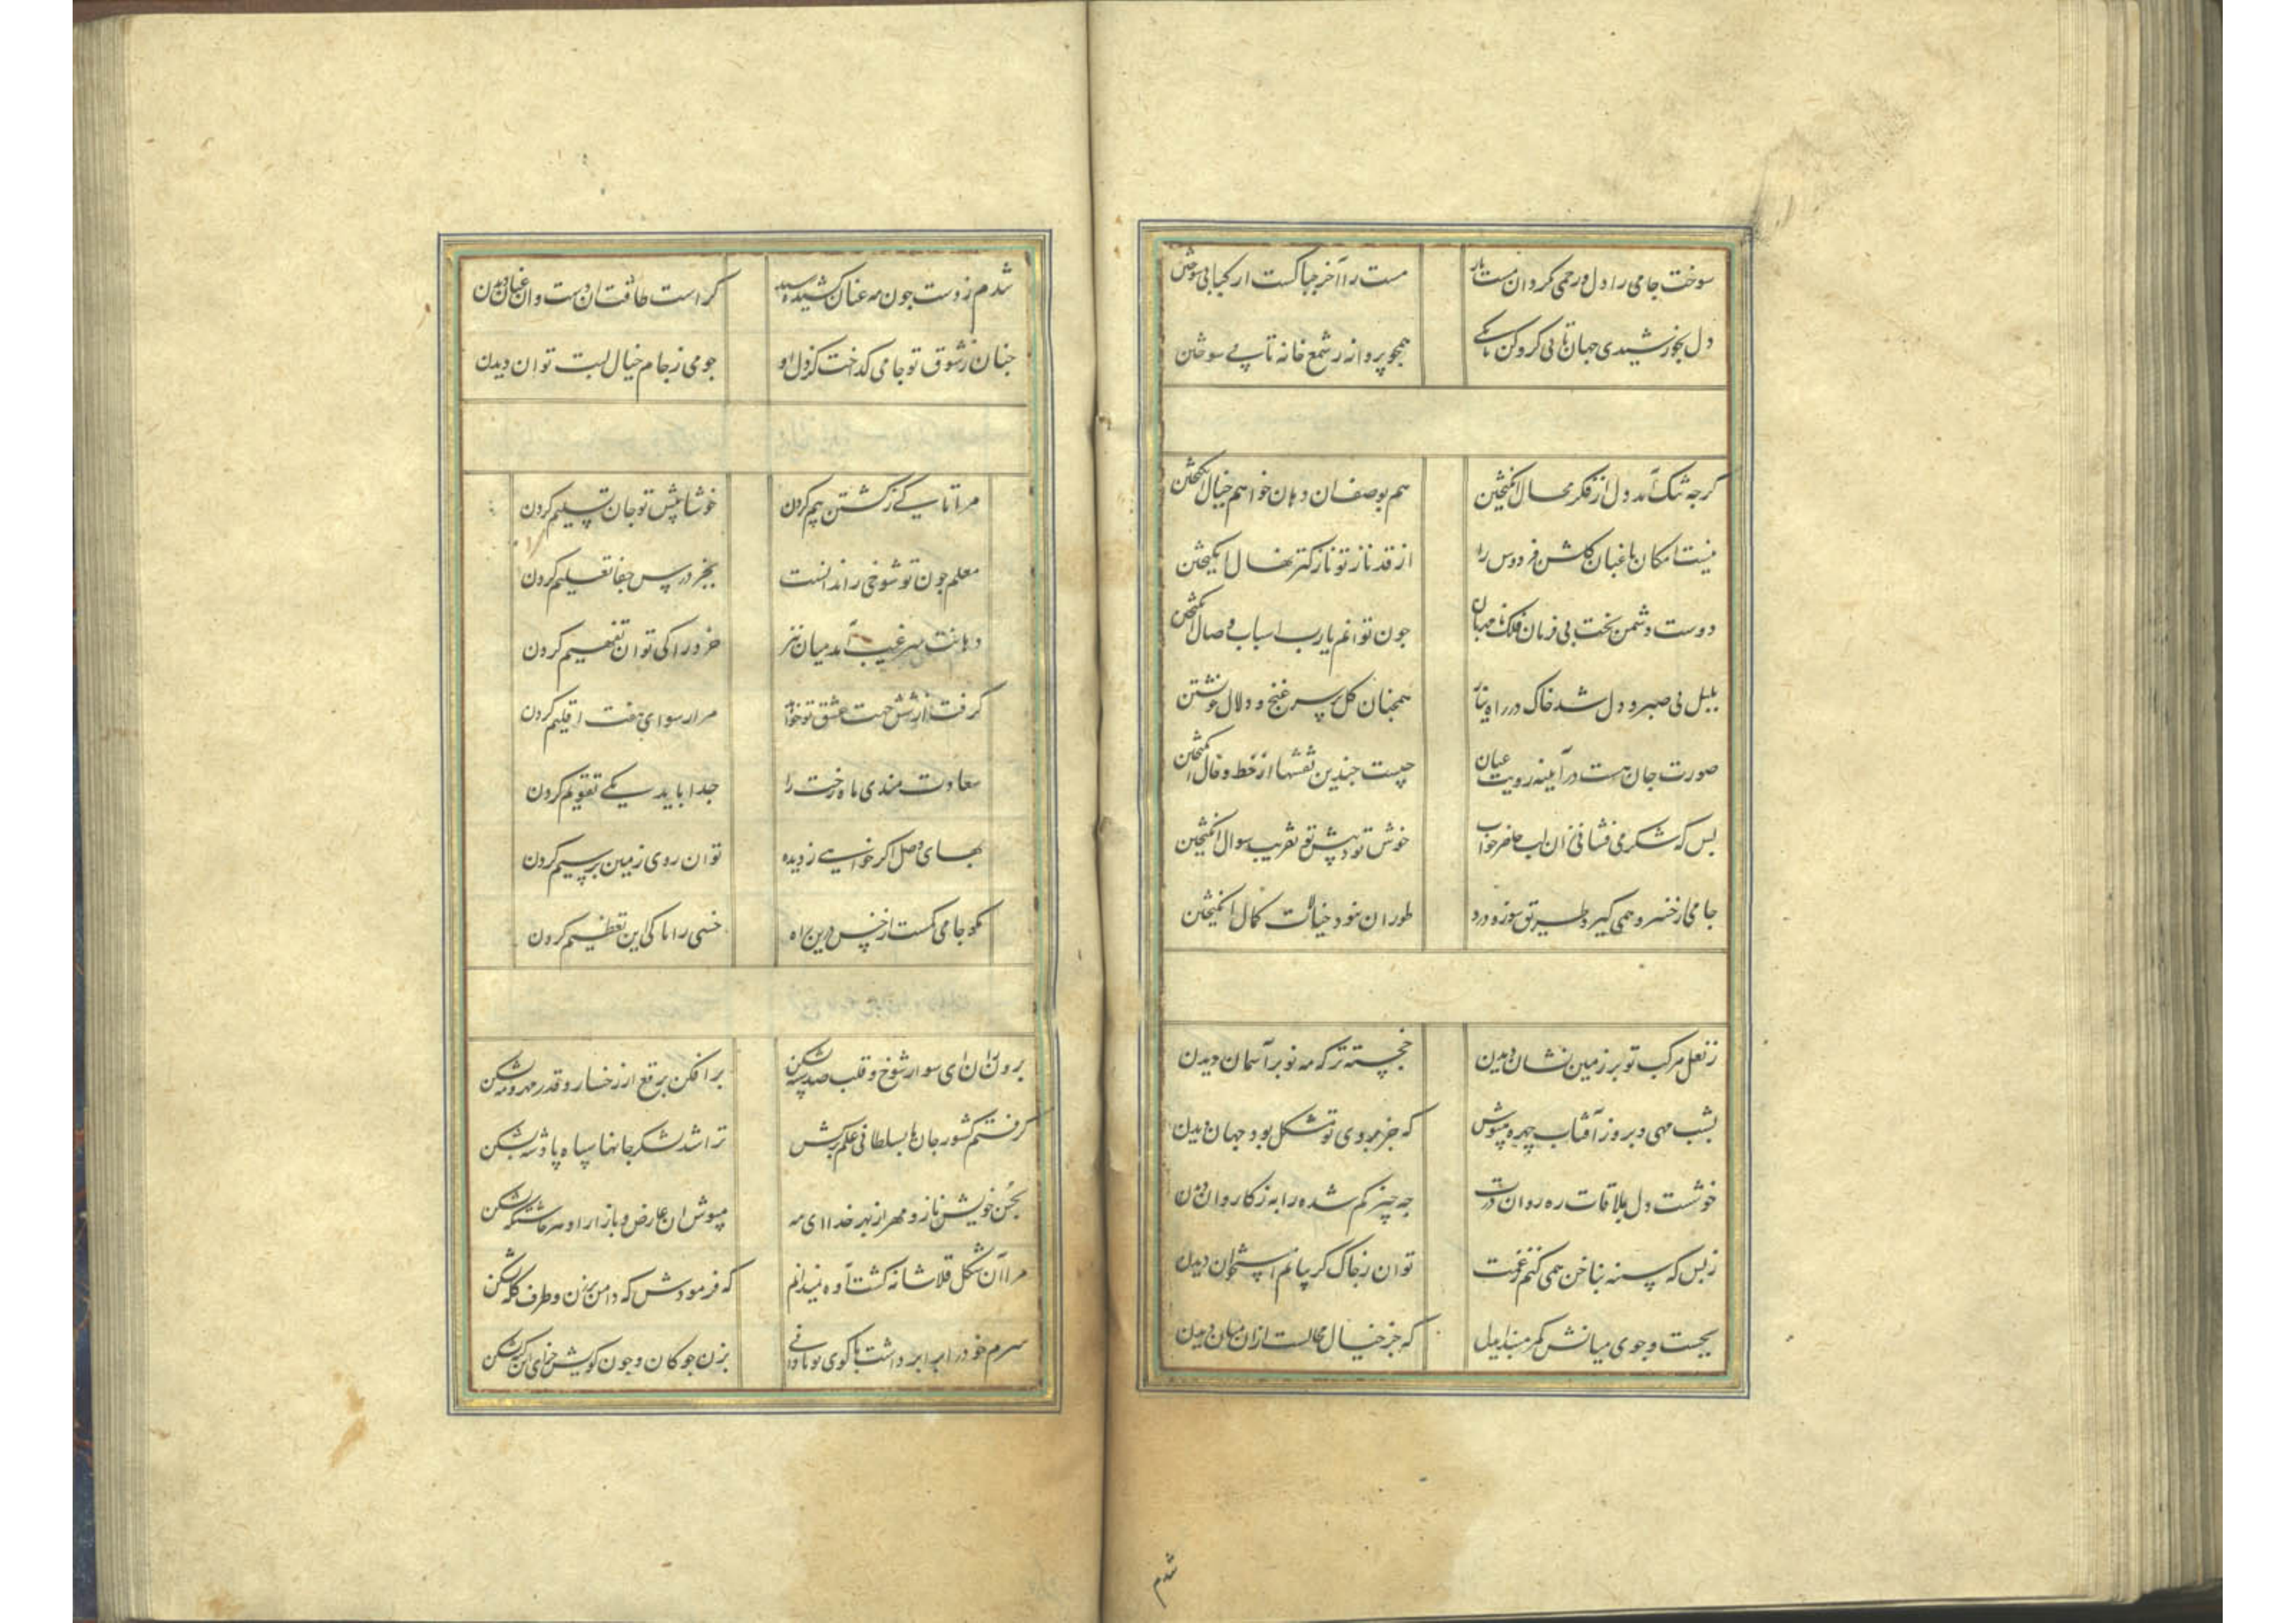 سوخت جامی را دل و رحمی نکرد آن مست ناز مست را آخر چه باکست از کبابی سوختن
دل بخورشیدی جهان تابی گرو کن تا بکی همچو پروانه ز شمع خانه تابی سوختن
گرچه تنک آمد دل از فکر محال انگیختن هم بوصف آن دهان خواهم خیال انگیختن
نیست امکان باغبان گلشن فردوس را از قد ناز تو نازکتر نهال انگیختن
دوست دشمن بخت بی فرمان فلک نامهربان چون توانم یارب اسباب وصال انگیختن
بلبل بی صبر و دل شد خاک در راه نیاز همچنان گل بر سر غنج و دلال خویشتن
صورت جان هست در آیینه رویت عیان چیست چندین نقشها از خط و خال انگیختن
بس که شکر می فشانی زان لب حاضر جواب خوش بود پیش تو تقریب سؤال انگیختن
جامی از خسرو همی گیرد طریق سوز و درد طور آن نبود خیالات کمال انگیختن
ز نعل مرکب تو بر زمین نشان دیدن خجسته تر که مه نو بر آسمان دیدن
بشب مهی و بروز آفتاب چهره مپوش که جز بروی تو مشکل بود جهان دیدن
خوشست دل بملاقات ره روان درت چه چیز کم شده را به ز کاروان دیدن
ز بس که سینه بناخن همی کنم ز غمت توان ز چاک گریبانم استخوان دیدن
بجست و جوی میانش کمر مبند ای دل که جز خیال محالست ازان میان دیدن
شدم
شدم ز دست چون مه عنان کشیده رسید کراست طاقت آن دست و آن عنان دیدن
چنان ز شوق تو جامی گداخت کز دل او چو می ز جام خیال لبت توان دیدن
مرا تا کی ز کشتن بیم کردن خوشا پیش تو جان تسلیم کردن
معلم چون تو شوخی را ندانست بجز درس جفا تعلیم کردن
دهانت سر غیب آمد میان نیز خرد را کی توان تفهیم کردن
گرفت از شش جهت عشق تو خواهد مرا رسوای هفت اقلیم کردن
سعادت مندی ماه رخت را جدا باید یکی تقویم کردن
بهای وصل اگر خواهی ز دیده توان روی زمین پر سیم کردن
مگو جامی کمست از خس درین راه خسی را تا کی این تعظیم کردن
برون ران ای سوار شوخ و قلب صد سپه بشکن برافکن برقع از رخسار و قدر مهر و مه بشکن
گرفتم کشور جانها بسلطانی علم برکش ترا شد لشکر جانها سپاه پادشه بشکن
بحسن خویش نازد مهر از بهر خدا ای مه مپوش آن عارض و بازار او هر جاشکه بشکن
مرا آن شکل قلاشانه کشت آوه نمیدانم که فرمودش که دامن برزن و طرف کله بشکن
سرم خود را برابر داشت با گوی تو نادانی بزن چوگان و چون گویش سزای این گنه بشکن